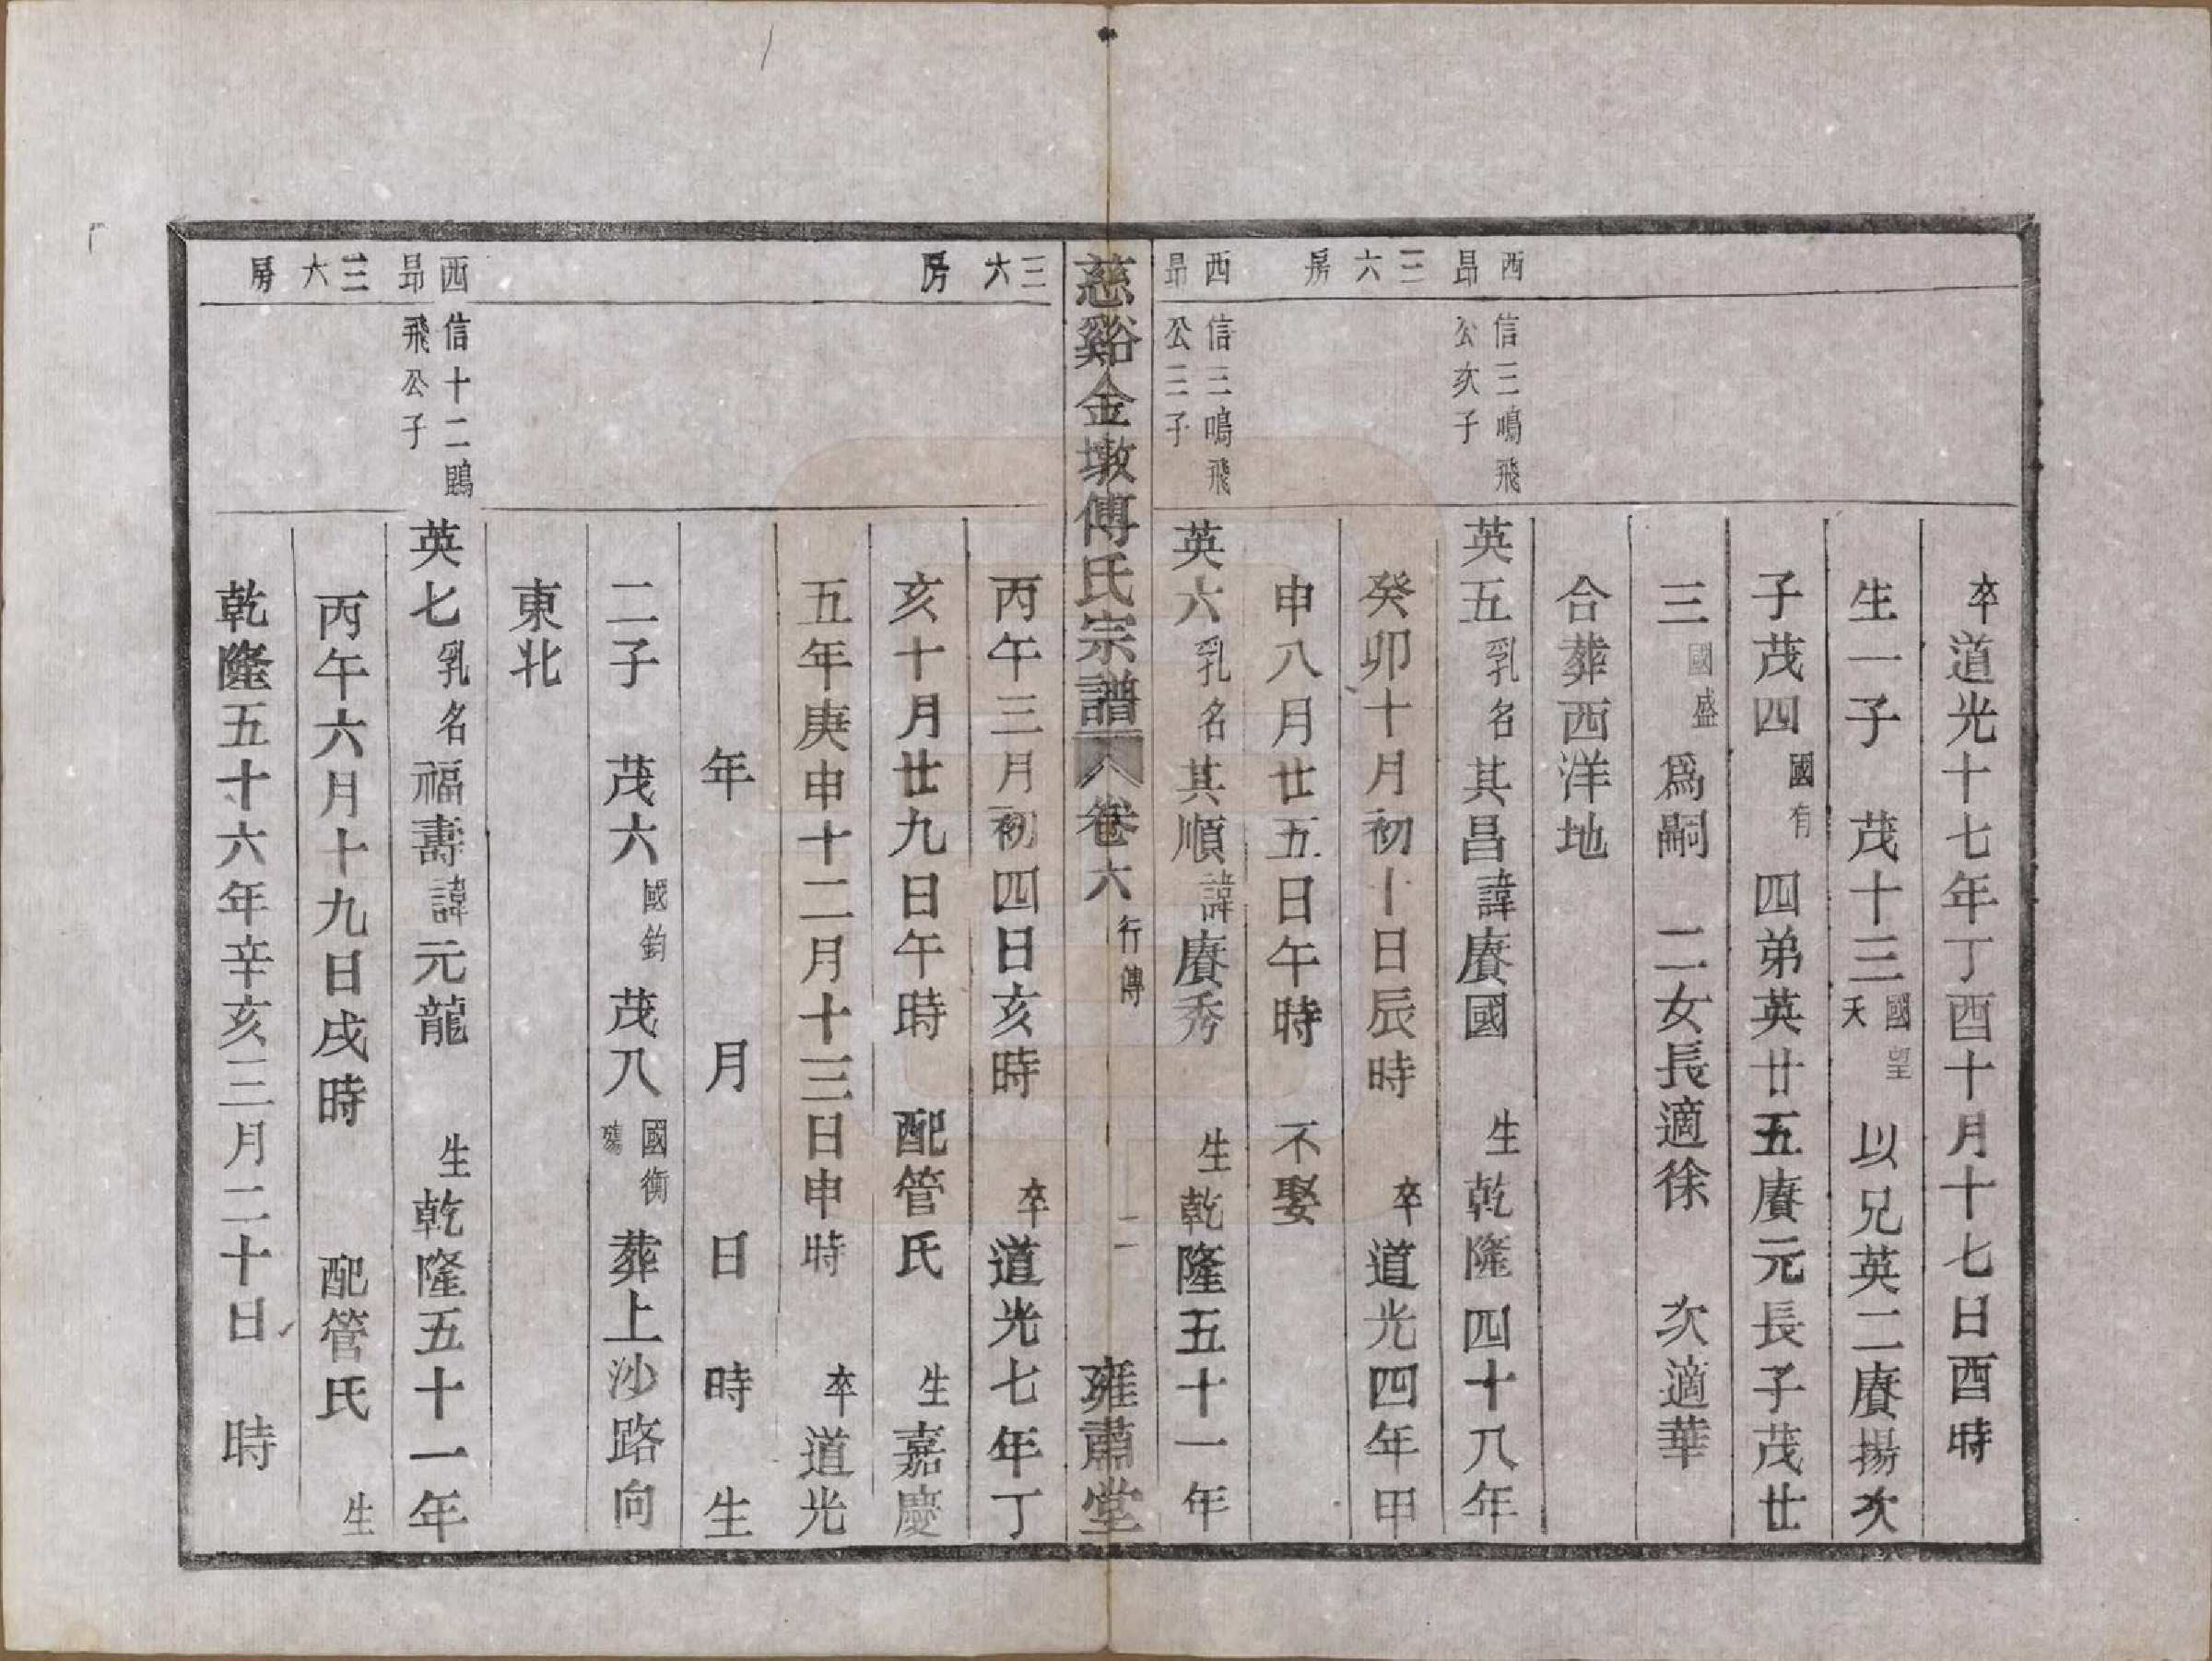 卒道光十七年丁酉十月十七日酉時
生一子　茂十三國望夭　以兄英二賡揚次
子茂四國有　四弟英廿五賡元長子茂廿
三國盛　爲嗣　二女長適徐　次適華
合葬西洋地
西昻三六房
信三鳴飛公次子
英五乳名其昌諱賡國　生乾隆四十八年
癸卯十月初十日辰時　卒道光四年甲
申八月廿五日午時　不娶
西昻三六房
信三鳴飛公三子
英六乳名其順諱賡秀　生乾隆五十一年
慈谿金墩傅氏宗譜　卷六　行傳　二　雍肅堂
丙午三月初四日亥時　卒道光七年丁
亥十月廿九日午時　配管氏　生嘉慶
五年庚申十二月十三日申時　卒道光
年　月　日　時　生
二子　茂六國鈞　茂八國衡殤　葬上沙路向
東北
西昻三六房
信十二鵾飛公子
英七乳名福壽諱元龍　生乾隆五十一年
丙午六月十九日戌時　配管氏　生
乾隆五十六年辛亥三月二十日　時